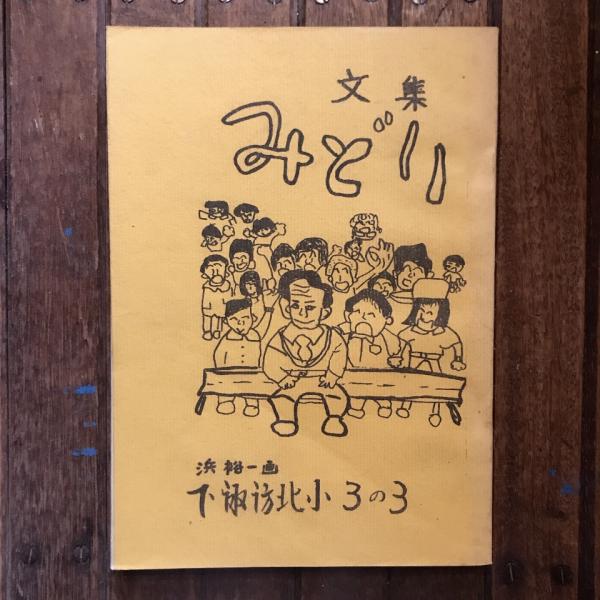 文集
みどり
浜裕一画
下諏訪北小3の3